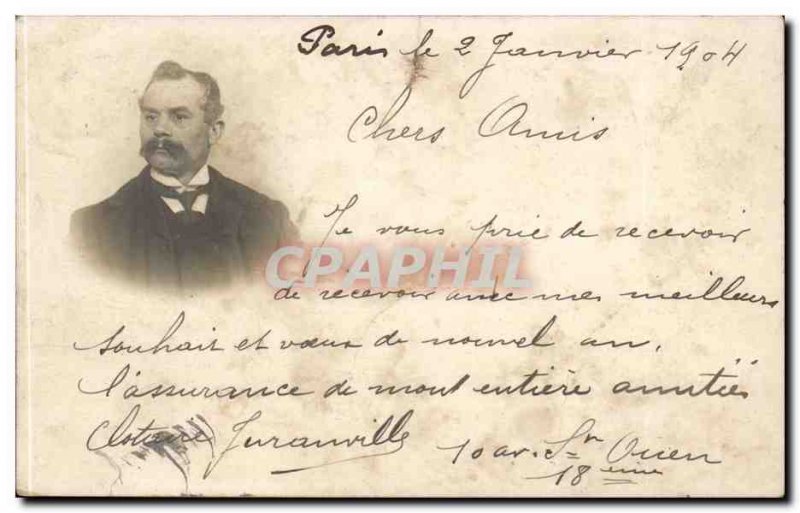 Paris le 2 Janvier 1904
Chers Amis
Je vous prie de recevoir
CPAPHIL
de recevoir avec mes meilleurs
souhait et vœux de nouvel an,
l'assurance de mout entière amitiés
Clotaire Juranville 10 av. St Ouen
18ème